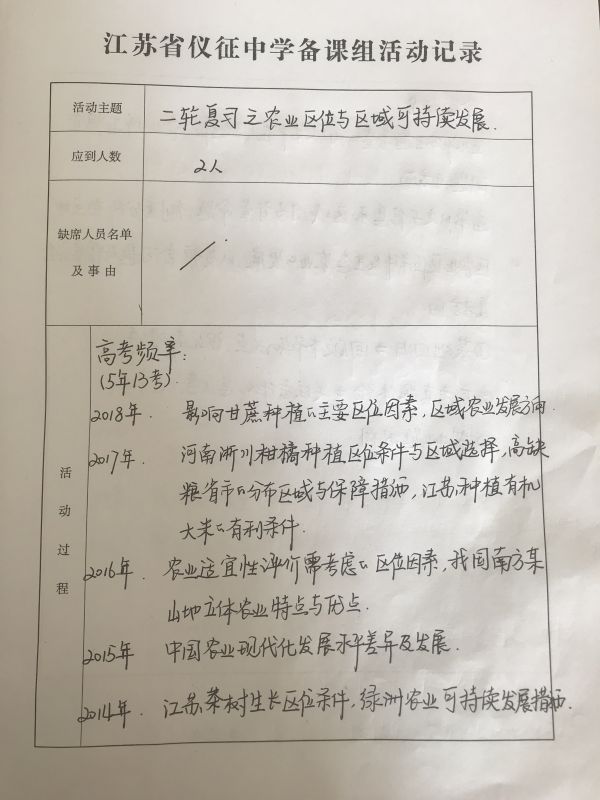 江苏省仪征中学备课组活动记录
活动主题
二轮复习之农业区位与区域可持续发展.
应到人数
2人
缺席人员名单
及事由
活动过程
高考频率:
(5年13考).
2018年. 影响甘蔗种植的主要区位因素,区域农业发展方向.
2017年. 河南淅川柑橘种植区位条件与区域选择,高缺
粮省市的分布区域与保障措施,江苏种植有机
大米的有利条件.
2016年. 农业适宜性评价需考虑的区位因素,我国南方某
山地立体农业特点与优点.
2015年 中国农业现代化发展水平差异及发展.
2014年. 江苏茶树生长区位条件,绿洲农业可持续发展措施.